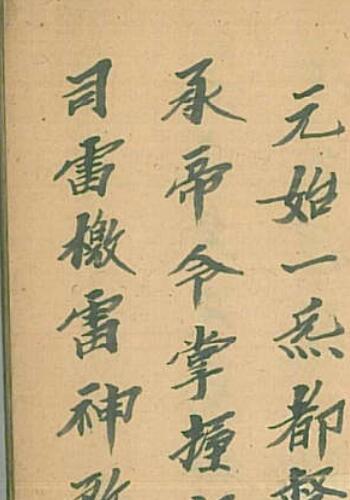 元始一炁都督
承帝令掌握
司雷檄雷神